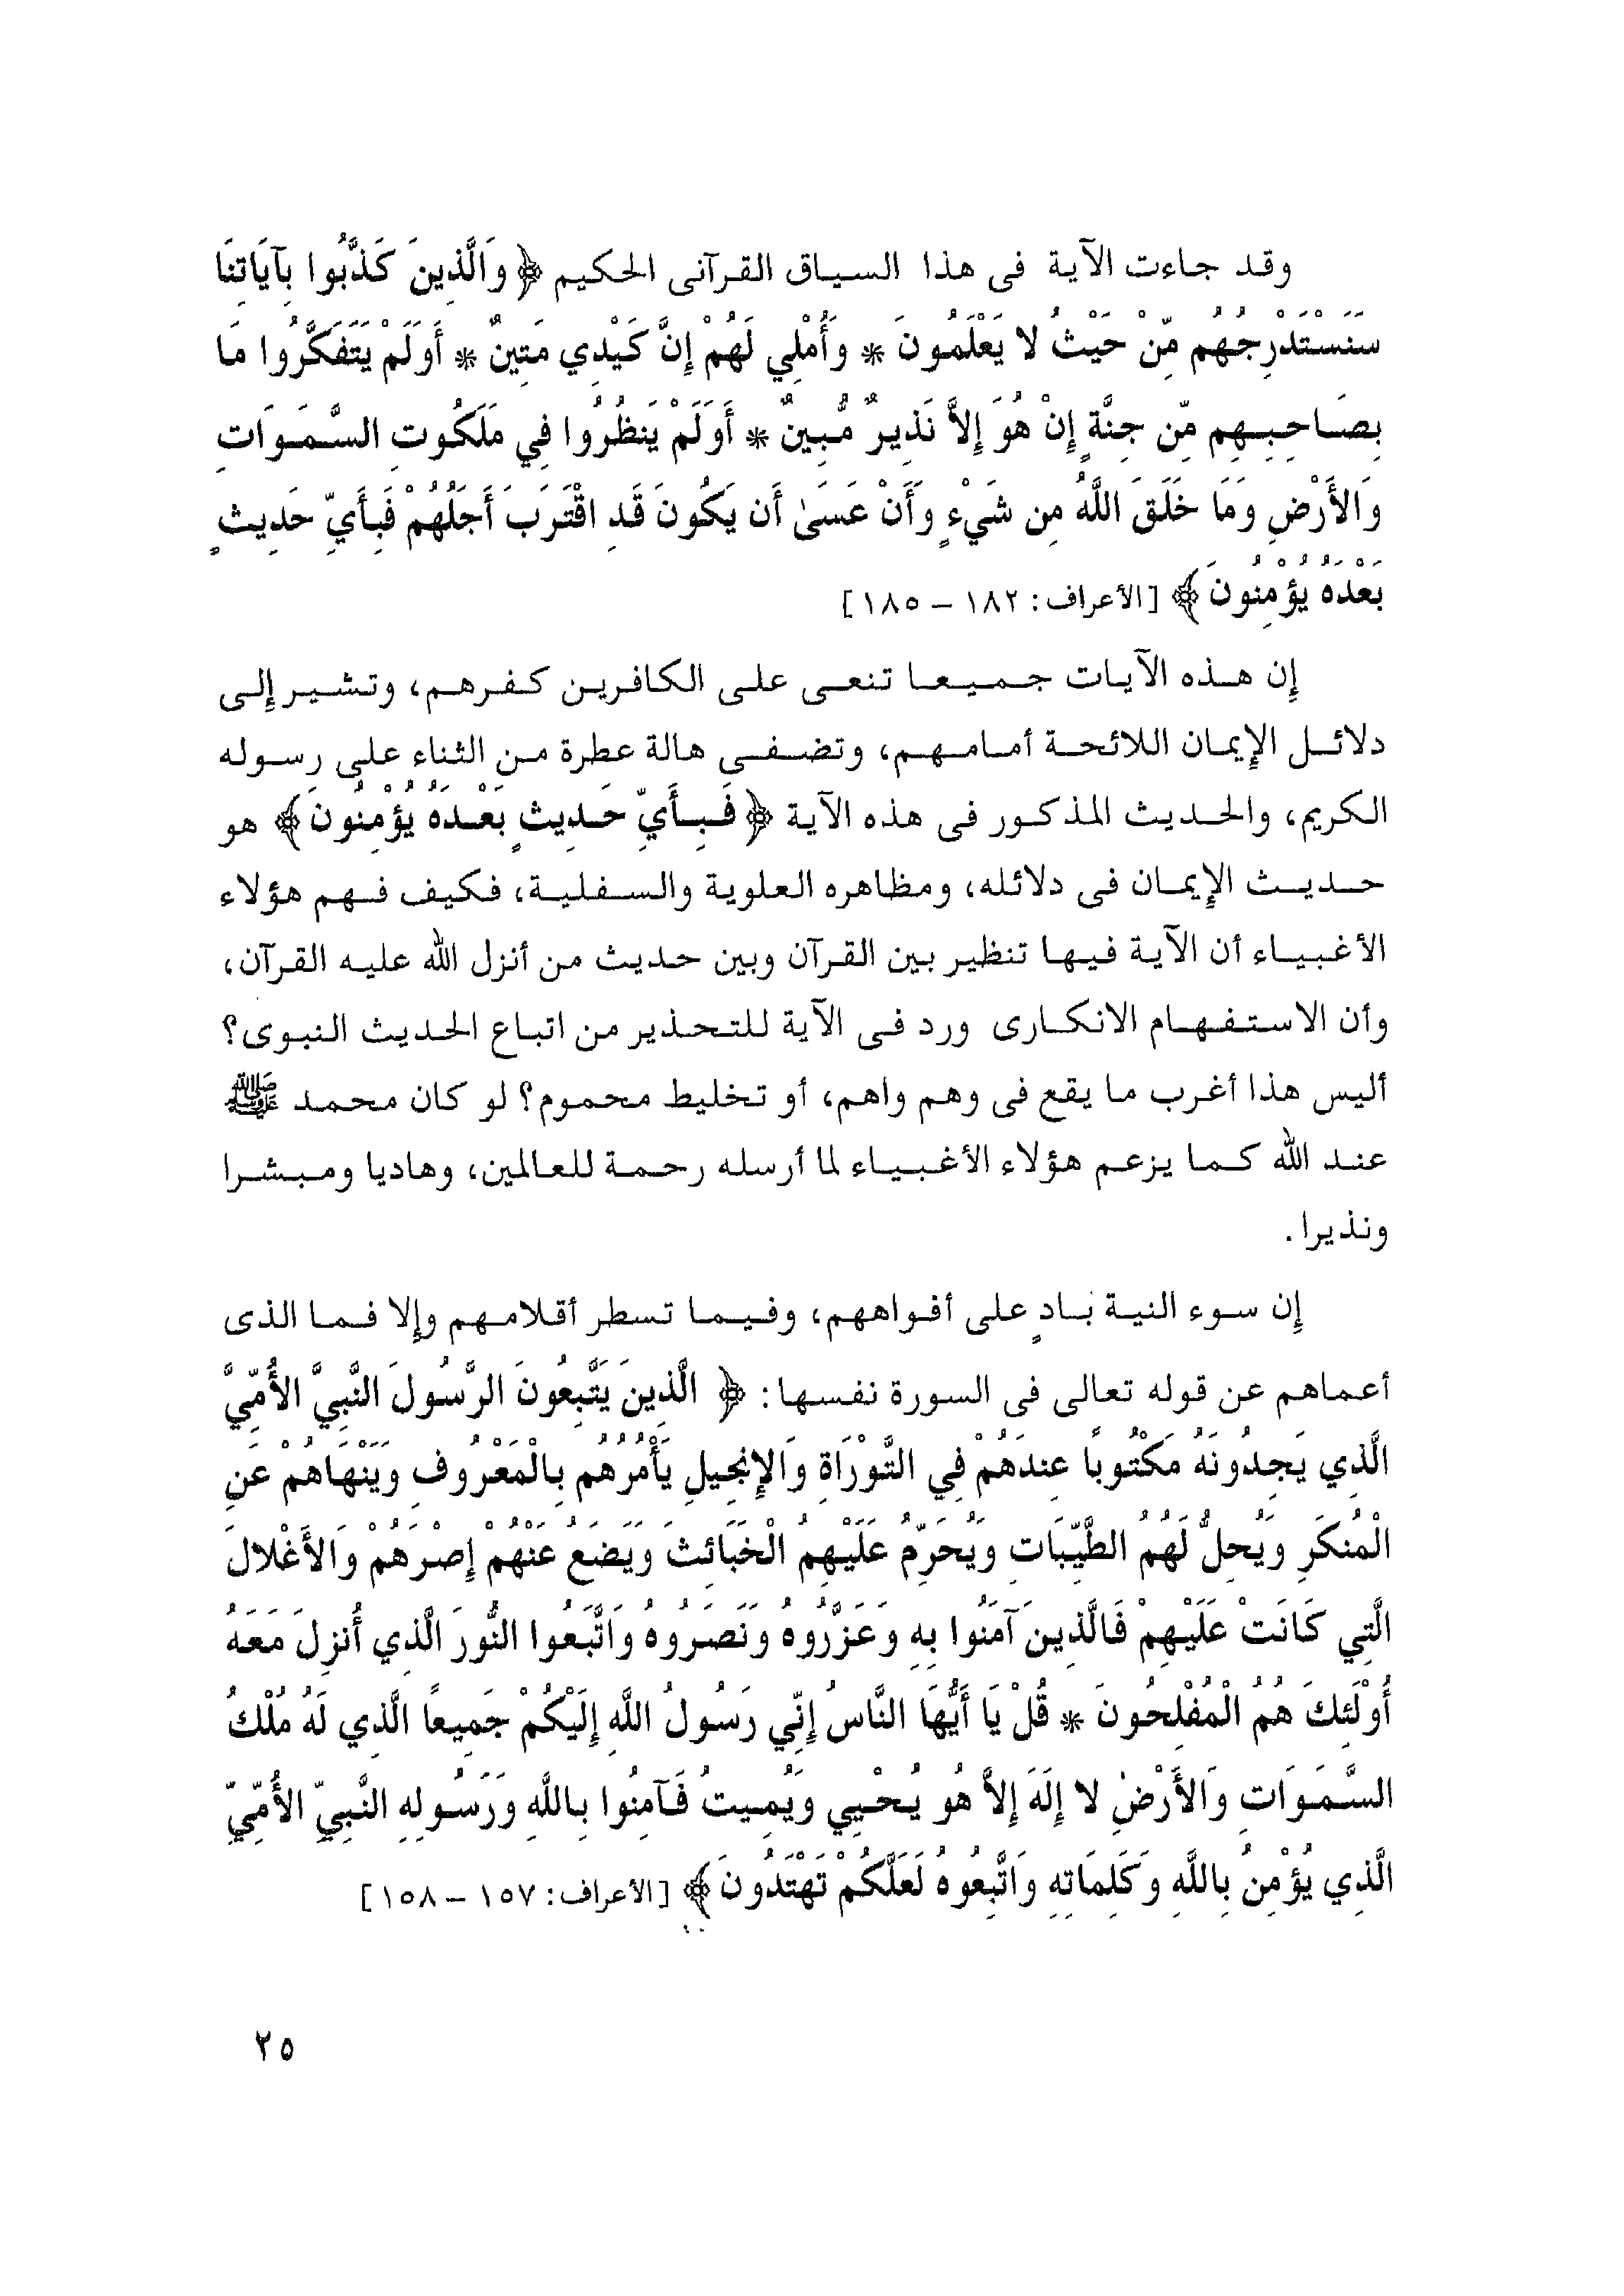 وقد جاءت الآية فى هذا السياق القرآنى الحكيم ﴿ وَالَّذِينَ كَذَّبُوا بِآيَاتِنَا
سَنَسْتَدْرِجُهُم مِّنْ حَيْثُ لا يَعْلَمُونَ * وَأُمْلِي لَهُمْ إِنَّ كَيْدِي مَتِينٌ * أَوَلَمْ يَتَفَكَّرُوا مَا
بِصَاحِبِهِم مِّن جِنَّةٍ إِنْ هُوَ إِلاَّ نَذِيرٌ مُّبِينٌ * أَوَلَمْ يَنظُرُوا فِي مَلَكُوتِ السَّمَوَاتِ
وَالأَرْضِ وَمَا خَلَقَ اللَّهُ مِن شَيْءٍ وَأَنْ عَسَىٰ أَن يَكُونَ قَدِ اقْتَرَبَ أَجَلُهُمْ فَبِأَيِّ حَدِيثٍ
بَعْدَهُ يُؤْمِنُونَ ﴾ [الأعراف: ١٨٢ – ١٨٥]
إن هذه الآيات جميعا تنعى على الكافرين كفرهم، وتشير إلى
دلائل الإيمان اللائحة أمامهم، وتضفى هالة عطرة من الثناء على رسوله
الكريم، والحديث المذكور فى هذه الآية ﴿ فَبِأَيِّ حَدِيثٍ بَعْدَهُ يُؤْمِنُونَ ﴾ هو
حديث الإيمان فى دلائله، ومظاهره العلوية والسفلية، فكيف فهم هؤلاء
الأغبياء أن الآية فيها تنظير بين القرآن وبين حديث من أنزل الله عليه القرآن،
وأن الاستفهام الانكارى ورد فى الآية للتحذير من اتباع الحديث النبوى؟
أليس هذا أغرب ما يقع فى وهم واهم، أو تخليط محموم؟ لو كان محمد ﷺ
عند الله كما يزعم هؤلاء الأغبياء لما أرسله رحمة للعالمين، وهاديا ومبشرا
ونذيرا.
إن سوء النية بادٍ على أفواههم، وفيما تسطر أقلامهم وإلا فما الذى
أعماهم عن قوله تعالى فى السورة نفسها: ﴿ الَّذِينَ يَتَّبِعُونَ الرَّسُولَ النَّبِيَّ الأُمِّيَّ
الَّذِي يَجِدُونَهُ مَكْتُوبًا عِندَهُمْ فِي التَّوْرَاةِ وَالإِنجِيلِ يَأْمُرُهُم بِالْمَعْرُوفِ وَيَنْهَاهُمْ عَنِ
الْمُنكَرِ وَيُحِلُّ لَهُمُ الطَّيِّبَاتِ وَيُحَرِّمُ عَلَيْهِمُ الْخَبَائِثَ وَيَضَعُ عَنْهُمْ إِصْرَهُمْ وَالأَغْلالَ
الَّتِي كَانَتْ عَلَيْهِمْ فَالَّذِينَ آمَنُوا بِهِ وَعَزَّرُوهُ وَنَصَرُوهُ وَاتَّبَعُوا النُّورَ الَّذِي أُنزِلَ مَعَهُ
أُوْلَئِكَ هُمُ الْمُفْلِحُونَ * قُلْ يَا أَيُّهَا النَّاسُ إِنِّي رَسُولُ اللَّهِ إِلَيْكُمْ جَمِيعًا الَّذِي لَهُ مُلْكُ
السَّمَوَاتِ وَالأَرْضِ لا إِلَهَ إِلاَّ هُوَ يُحْيِي وَيُمِيتُ فَآمِنُوا بِاللَّهِ وَرَسُولِهِ النَّبِيِّ الأُمِّيِّ
الَّذِي يُؤْمِنُ بِاللَّهِ وَكَلِمَاتِهِ وَاتَّبِعُوهُ لَعَلَّكُمْ تَهْتَدُونَ ﴾ [الأعراف: ١٥٧ – ١٥٨]
٢٥